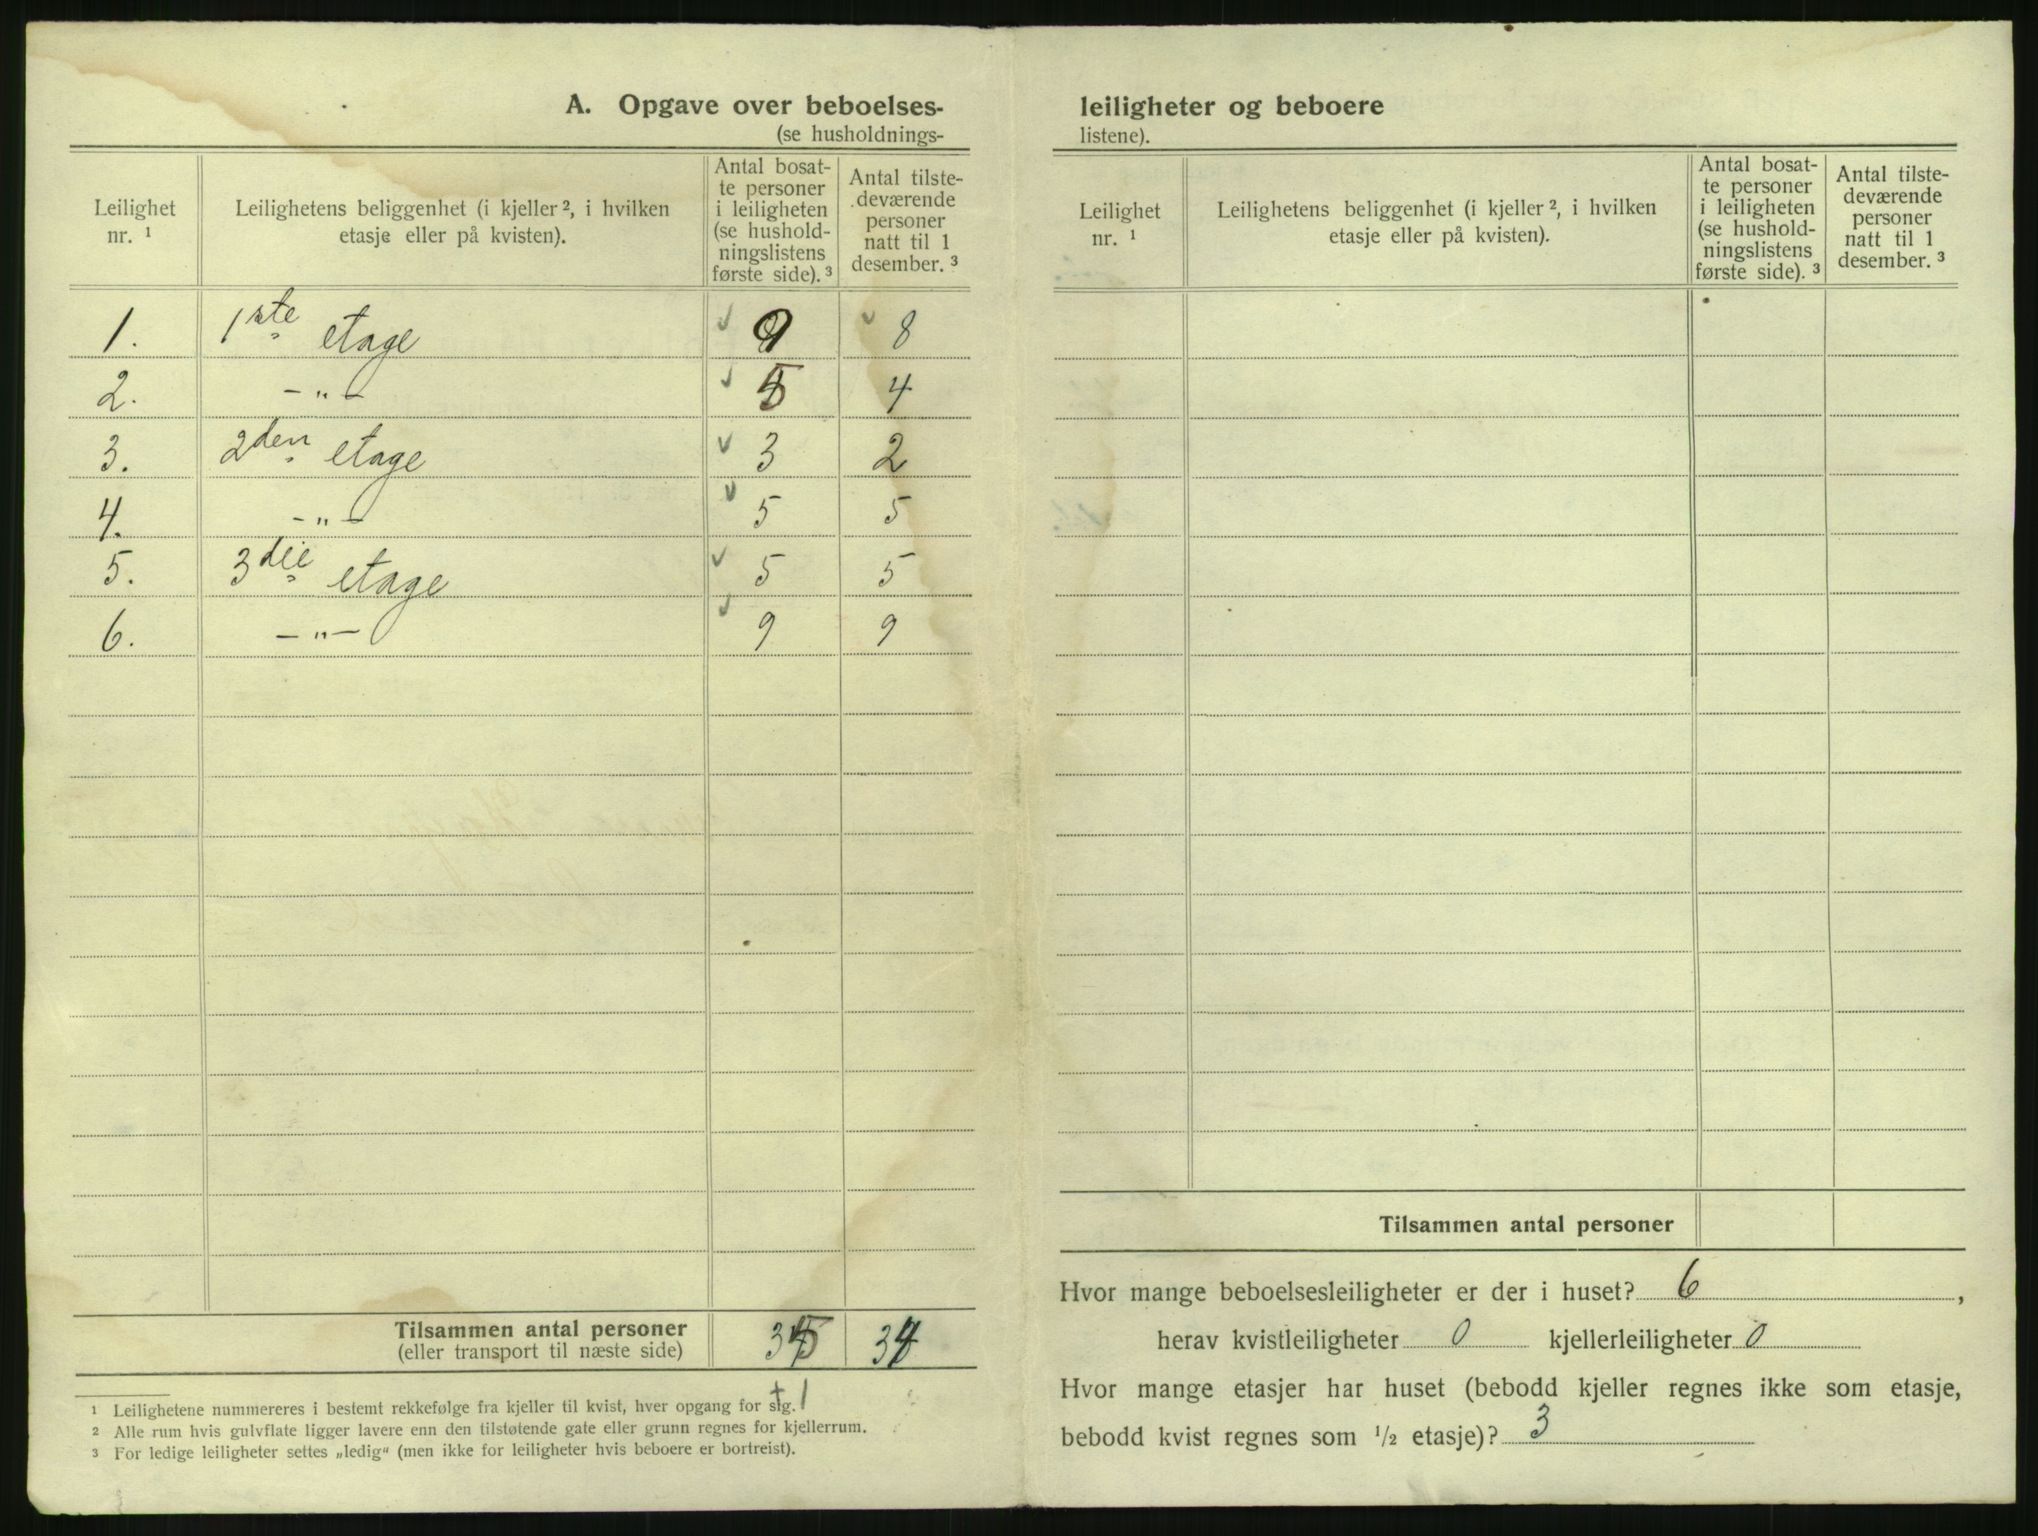 A. Opgave over beboelses-
(se husholdnings-
Leilighet nr. ¹
Leilighetens beliggenhet (i kjeller ², i hvilken etasje eller på kvisten).
Antal bosat-
te personer
i leiligheten
(se hushold-
ningslistens
første side). ³
Antal tilste-
deværende
personer
natt til 1
desember. ³
1. 1ste etage 9 8
2. -"- 5 4
3. 2den etage 3 2
4. -"- 5 5
5. 3die etage 5 5
6. -"- 9 9
Tilsammen antal personer
(eller transport til næste side)
+1
¹ Leilighetene nummereres i bestemt rekkefølge fra kjeller til kvist, hver opgang for sig.
² Alle rum hvis gulvflate ligger lavere enn den tilstøtende gate eller grunn regnes for kjellerrum.
³ For ledige leiligheter settes „ledig“ (men ikke for leiligheter hvis beboere er bortreist).
leiligheter og beboere
listene).
Leilighet nr. ¹
Leilighetens beliggenhet (i kjeller ², i hvilken
etasje eller på kvisten).
Antal bosat-
te personer
i leiligheten
(se hushold-
ningslistens
første side). ³
Antal tilste-
deværende
personer
natt til 1
desember. ³
Tilsammen antal personer
Hvor mange beboelsesleiligheter er der i huset? 6 ,
herav kvistleiligheter 0 kjellerleiligheter 0
Hvor mange etasjer har huset (bebodd kjeller regnes ikke som etasje,
bebodd kvist regnes som ½ etasje)? 3